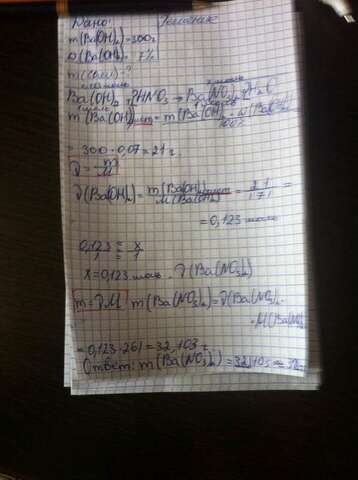 Дано: Решение
m(Ba(OH)₂)=300г
ω(Ba(OH)₂)= 7%
m(соли)-?
Ba(OH)₂ + 2HNO₃ → Ba(NO₃)₂ + 2H₂O
1 моль 1 моль
m(Ba(OH)₂)чист = m(Ba(OH)₂ · ω(Ba(OH)₂)
100%
= 300·0,07=21г.
ν = m/M
ν(Ba(OH)₂)= m(Ba(OH)₂)чист / M(Ba(OH)₂) = 21/171 =
=0,123 моль
0,123/1 = x/1
x=0,123 моль. ν(Ba(NO₃)₂)
m=νM m(Ba(NO₃)₂)=ν(Ba(NO₃)₂·
·M(Ba(NO₃)
= 0,123·261=32,103 г
Ответ: m(Ba(NO₃)₂)=32,103